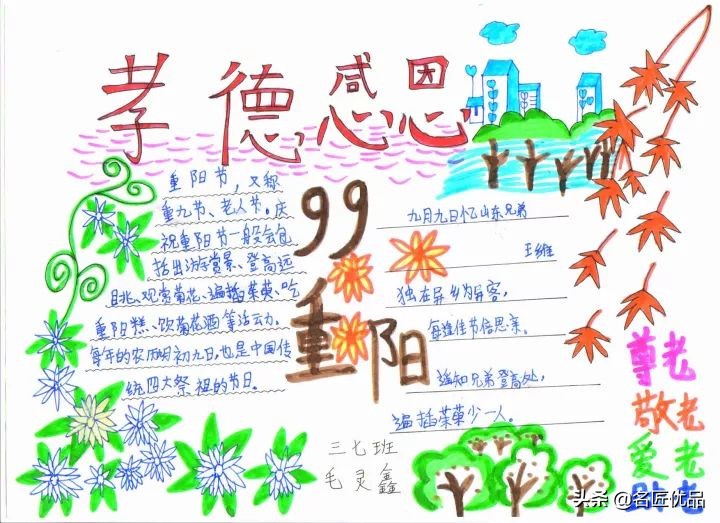 孝德感恩
重阳节，又称
重九节、老人节。庆
祝重阳节一般会包
括出游赏景、登高远
眺、观赏菊花、遍插茱萸、吃
重阳糕、饮菊花酒等活动。
每年的农历月初九日，也是中国传
统四大祭祖的节日。
99
重阳
九月九日忆山东兄弟
王维
独在异乡为异客，
每逢佳节倍思亲。
遥知兄弟登高处，
遍插茱萸少一人。
三七班
毛灵鑫
尊老
敬老
爱老
助老
头条 @名匠优品